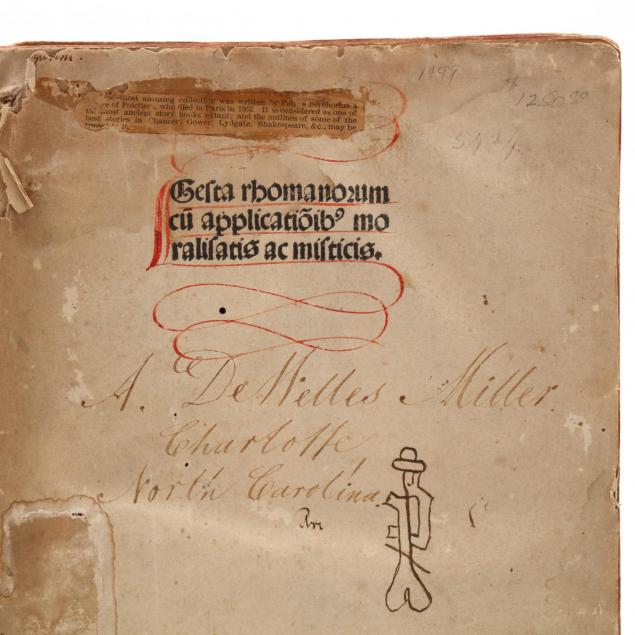 1499
12
most amusing collection was written by Peh
re of Poictier, who died in Paris in 1362. It is considered as one of
the most ancient story books extant; and the outlines of some of the
best stories in Chaucer, Gower, Lydgate, Shakespeare, &c., may be
it.
Gesta rhomanorum
cū applicatiōibꝰ mo
ralisatis ac misticis.
A. De Welles Miller
Charlotte
North Carolina